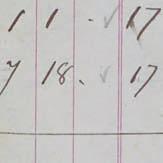 1 1 - ✓ 17
7 18. ✓ 17